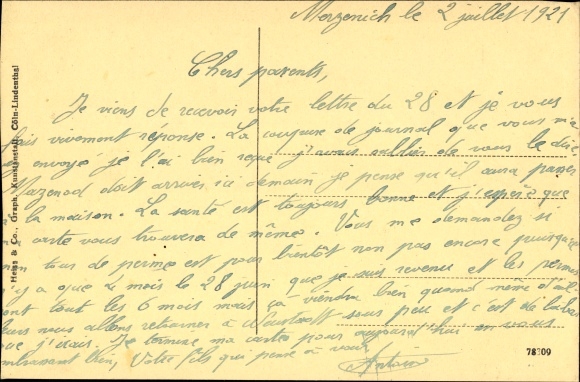 Merzenich le 2 juillet 1921
Chers parents,
Je viens de recevoir votre lettre du 28 et je vous
fais vivement réponse. La coupure de journal que vous m'a
envoyé je l'ai bien reçue j'avais oublier de vous le dire
doit arriver ici demain je pense qu'il aura passer
la maison. La santé est toujours bonne et j'espère que
carte vous trouvera de même. Vous me demandez si
mon tour de perme est pour bientôt non pas encore puisque
y a que 2 mois le 28 juin que je suis revenu et les permes
sont tout les 6 mois mais ça viendra bien quand même d'ail
leurs nous allons retourner à sous peu et c'est de là-bas
que j'irais. Je termine ma carte pour aujourd'hui en vous
embrassant bien, Votre fils qui pense à vous
Antoine
Hens & Co., Graph. Kunstanstalt, Cöln-Lindenthal
78309